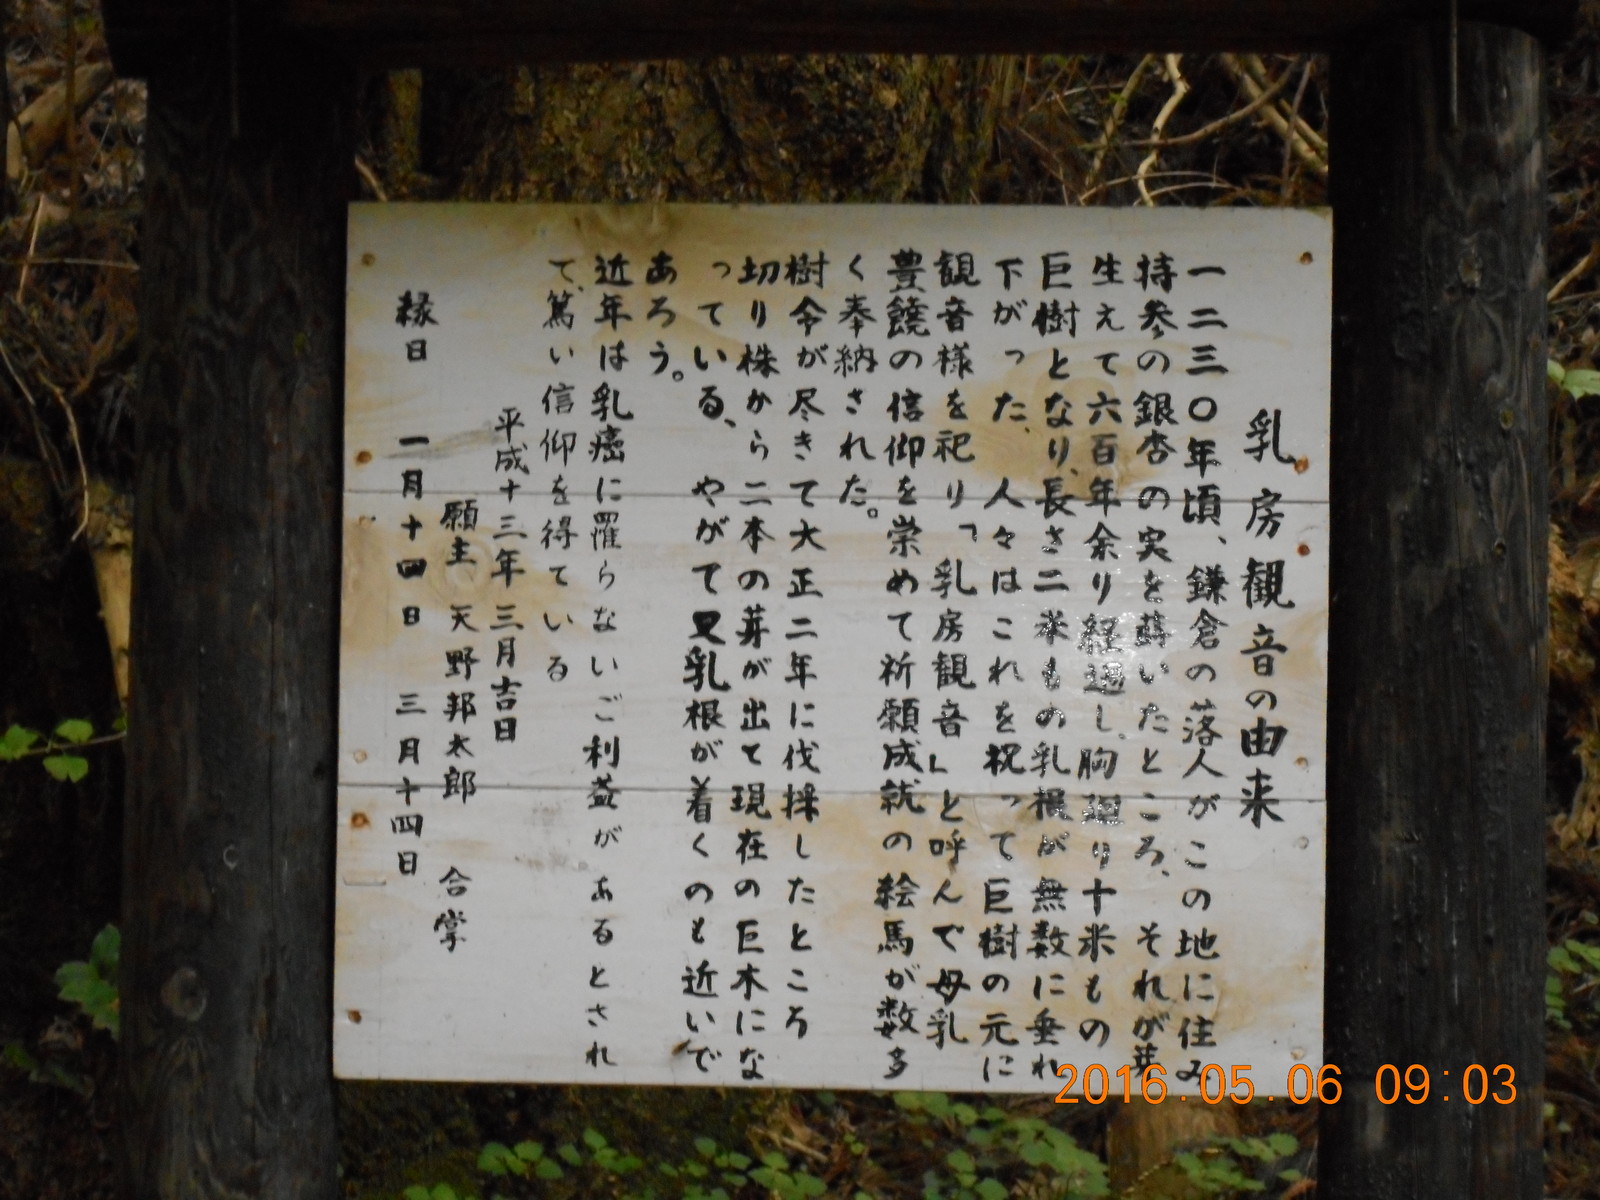 乳房観音の由来
一二三〇年頃、鎌倉の落人がこの地に住み
持参の銀杏の実を蒔いたところ、それが芽
生えて六百年余り経過し、胸廻り十米もの
巨樹となり、長さ二米もの乳根が無数に垂れ
下がった、人々はこれを祝って巨樹の元に
観音様を祀り「乳房観音」と呼んで母乳
豊饒の信仰を崇めて祈願成就の絵馬が数多
く奉納された。
樹令が尽きて大正二年に伐採したところ
切り株から二本の芽が出て現在の巨木にな
っている、やがて又乳根が着くのも近いで
あろう。
近年は乳癌に罹らないご利益があるとされ
て、篤い信仰を得ている
平成十三年三月吉日
願主 天野邦太郎 合掌
縁日 一月十四日 三月十四日
2016.05.06 09:03